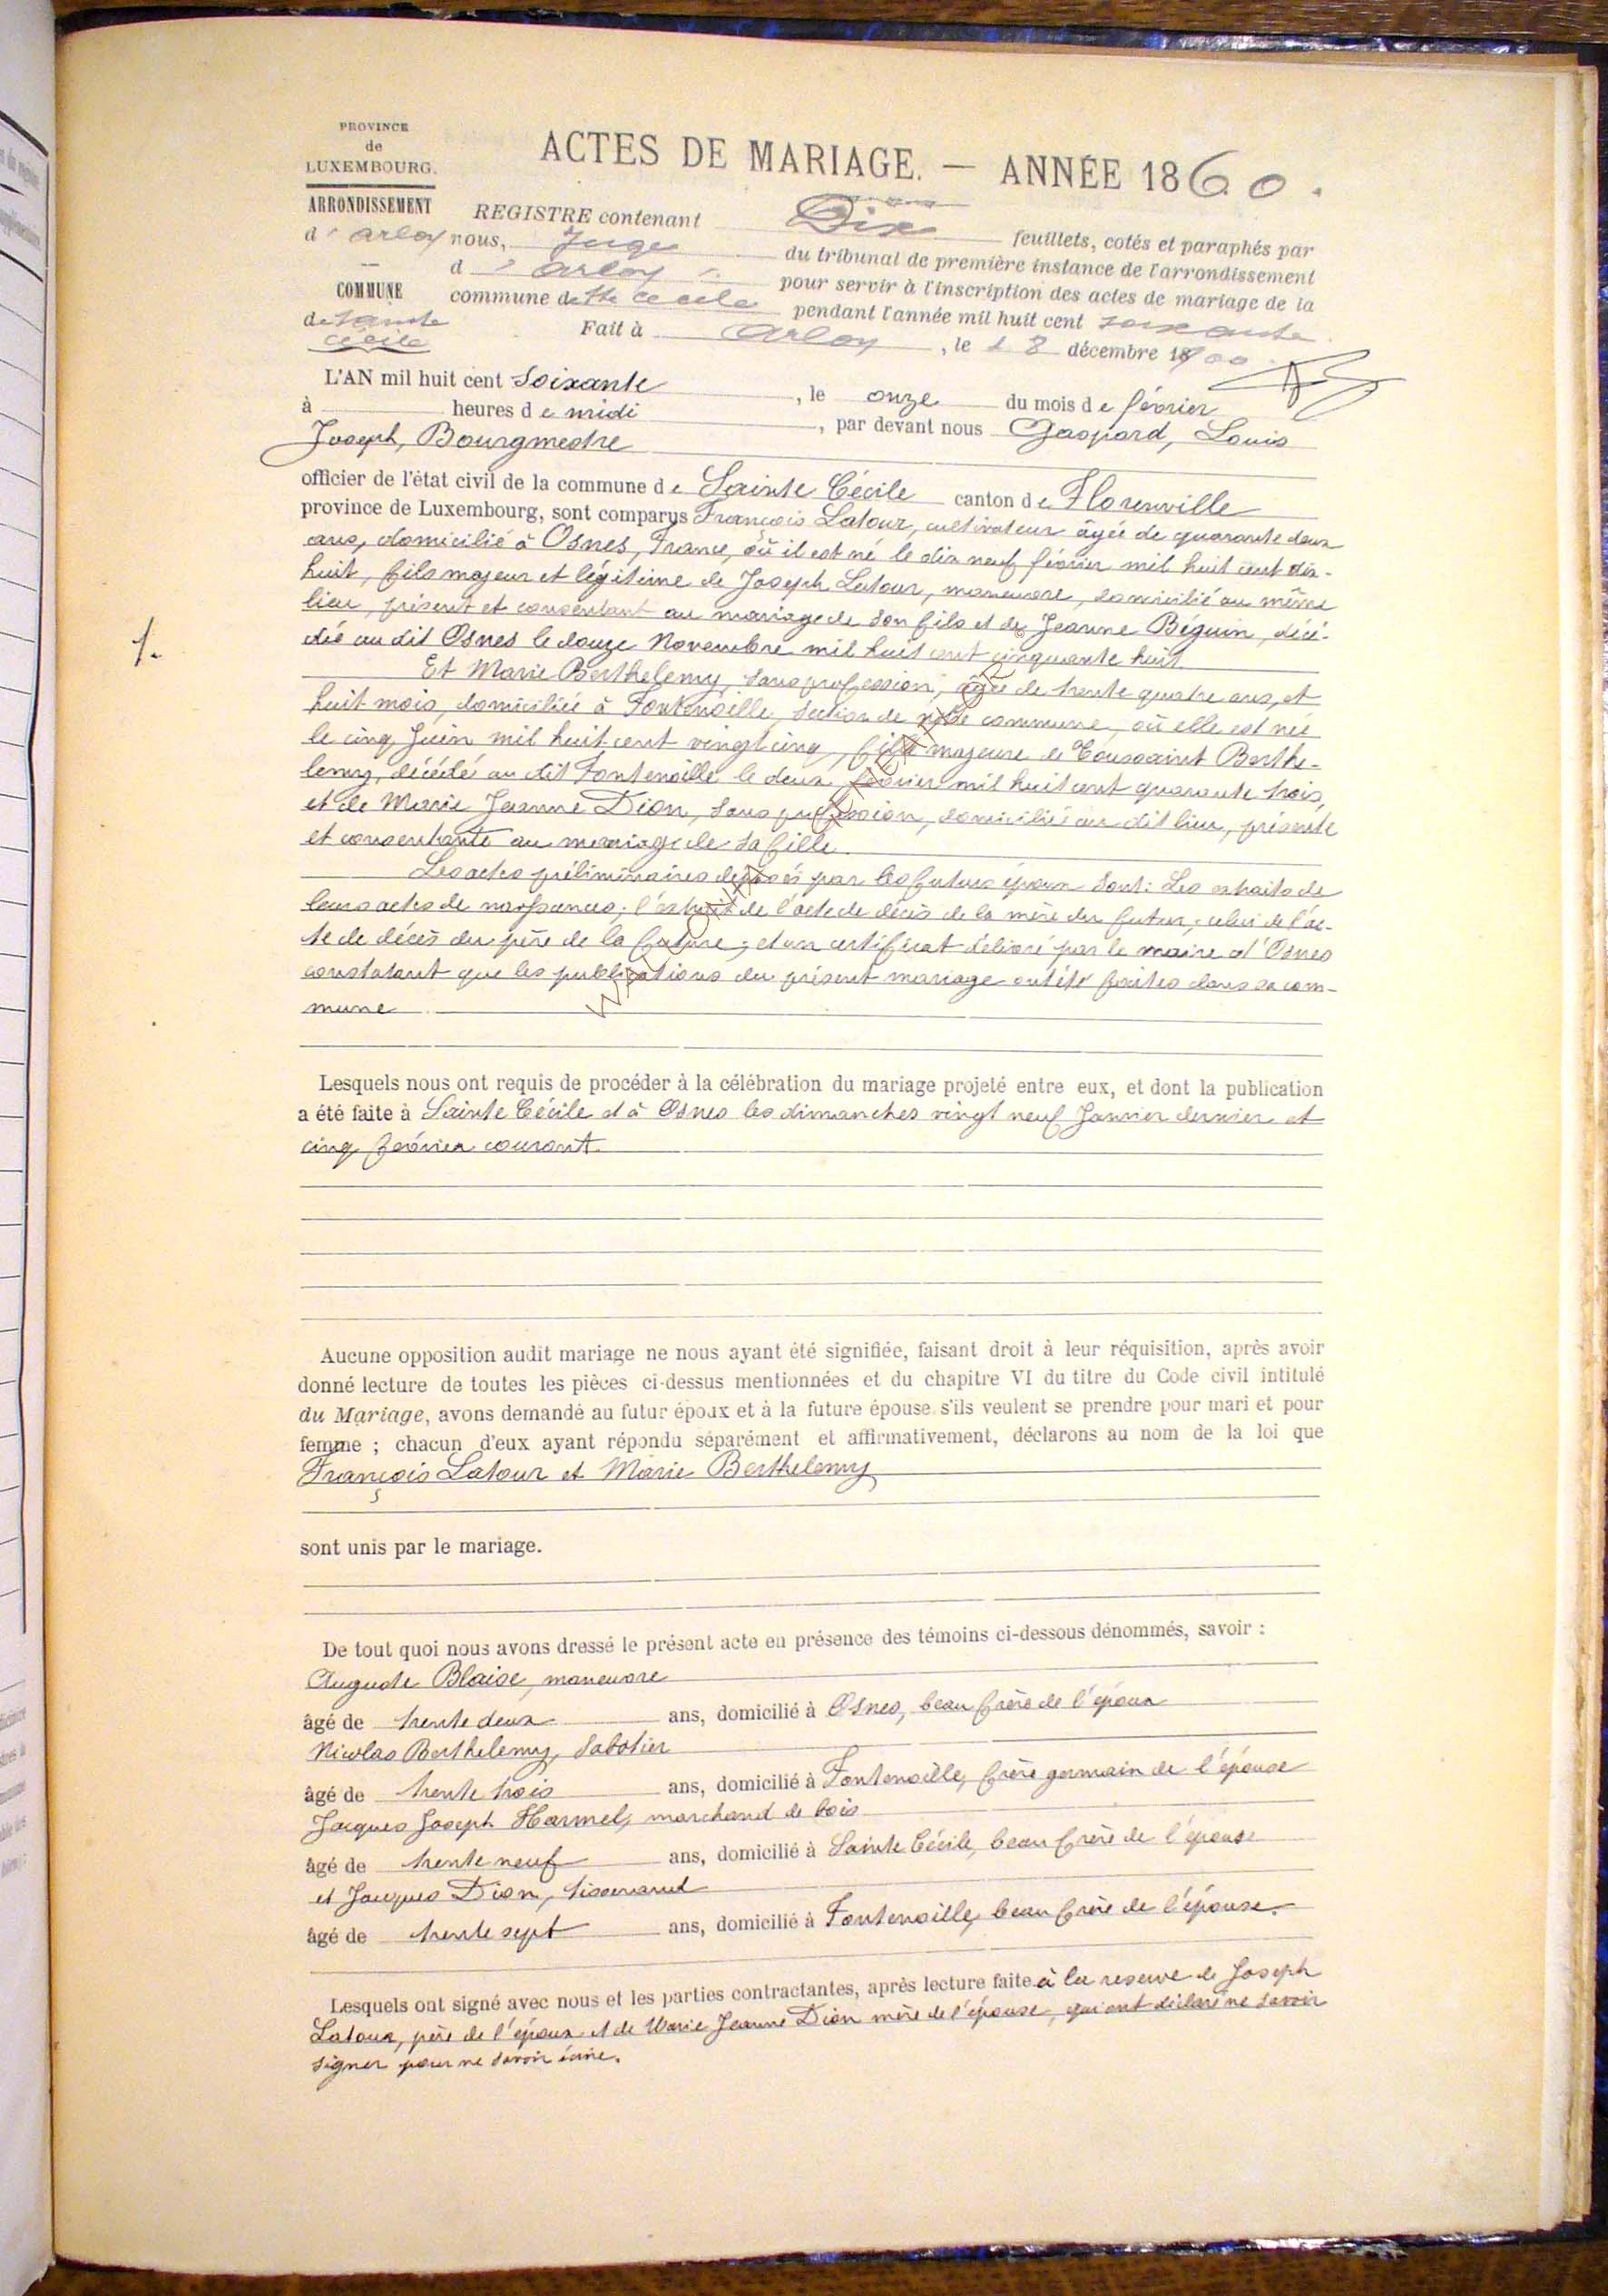 PROVINCE
de
LUXEMBOURG.
ACTES DE MARIAGE. — ANNÉE 1860.
ARRONDISSEMENT
d'Arlon
COMMUNE
de Sainte
Cécile
REGISTRE contenant Dix feuillets, cotés et paraphés par
nous, Juge du tribunal de première instance de l'arrondissement
d'Arlon pour servir à l'inscription des actes de mariage de la
commune de Ste Cécile pendant l'année mil huit cent soixante.
Fait à Arlon, le 28 décembre 1900.
L'AN mil huit cent Soixante, le onze du mois de février
à heures de midi, par devant nous Gaspard, Louis
Joseph, Bourgmestre
officier de l'état civil de la commune de Sainte Cécile canton de Florenville
province de Luxembourg, sont comparus François Latour, cultivateur âgée de quarante deux
ans, domicilié à Osnes, France, où il est né le dix neuf février mil huit cent dix-
huit, fils majeur et légitime de Joseph Latour, maneuvre, domicilié au même
lieu, présent et consentant au mariage de son fils et de Jeanne Béguin, décé-
dée au dit Osnes le douze Novembre mil huit cent cinquante huit
1.
Et Marie Berthelemy, sans profession, âgée de trente quatre ans, et
huit mois, domiciliée à Fontenoille, section de notre commune, où elle est née
le cinq Juin mil huit cent vingt cinq, fille majeure de Toussaint Berthe-
lemy, décédé au dit Fontenoille le deux février mil huit cent quarante trois,
et de Marie Jeanne Dion, sans profession, domiciliée au dit lieu, présente
et consentante au mariage de sa fille.
Les actes préliminaires déposés par les futurs époux sont: Les extraits de
leurs actes de naissances; l'extrait de l'acte de décès de la mère du futur; celui de l'ac-
te de décès du père de la future; et un certificat délivré par le maire d'Osnes
constatant que les publications du présent mariage ont été faites dans sa com-
mune
Lesquels nous ont requis de procéder à la célébration du mariage projeté entre eux, et dont la publication
a été faite à Sainte Cécile et à Osnes les dimanches vingt neuf Janvier dernier et
cinq février courant.
Aucune opposition audit mariage ne nous ayant été signifiée, faisant droit à leur réquisition, après avoir
donné lecture de toutes les pièces ci-dessus mentionnées et du chapitre VI du titre du Code civil intitulé
du Mariage, avons demandé au futur époux et à la future épouse s'ils veulent se prendre pour mari et pour
femme ; chacun d'eux ayant répondu séparément et affirmativement, déclarons au nom de la loi que
François Latour et Marie Berthelemy
sont unis par le mariage.
De tout quoi nous avons dressé le présent acte en présence des témoins ci-dessous dénommés, savoir :
Auguste Blaise, maneuvre
âgé de trente deux ans, domicilié à Osnes, beau frère de l'époux
Nicolas Berthelemy, Sabotier
âgé de trente trois ans, domicilié à Fontenoille, frère germain de l'épouse
Jacques Joseph Harmel, marchand de bois
âgé de trente neuf ans, domicilié à Sainte Cécile, beau frère de l'épouse
et Jacques Dion, tisserand
âgé de trente sept ans, domicilié à Fontenoille, beau frère de l'épouse.
Lesquels ont signé avec nous et les parties contractantes, après lecture faite à la reserve de Joseph
Latour, père de l'époux et de Marie Jeanne Dion mère de l'épouse, qui ont déclaré ne savoir
signer pour ne savoir écrire.